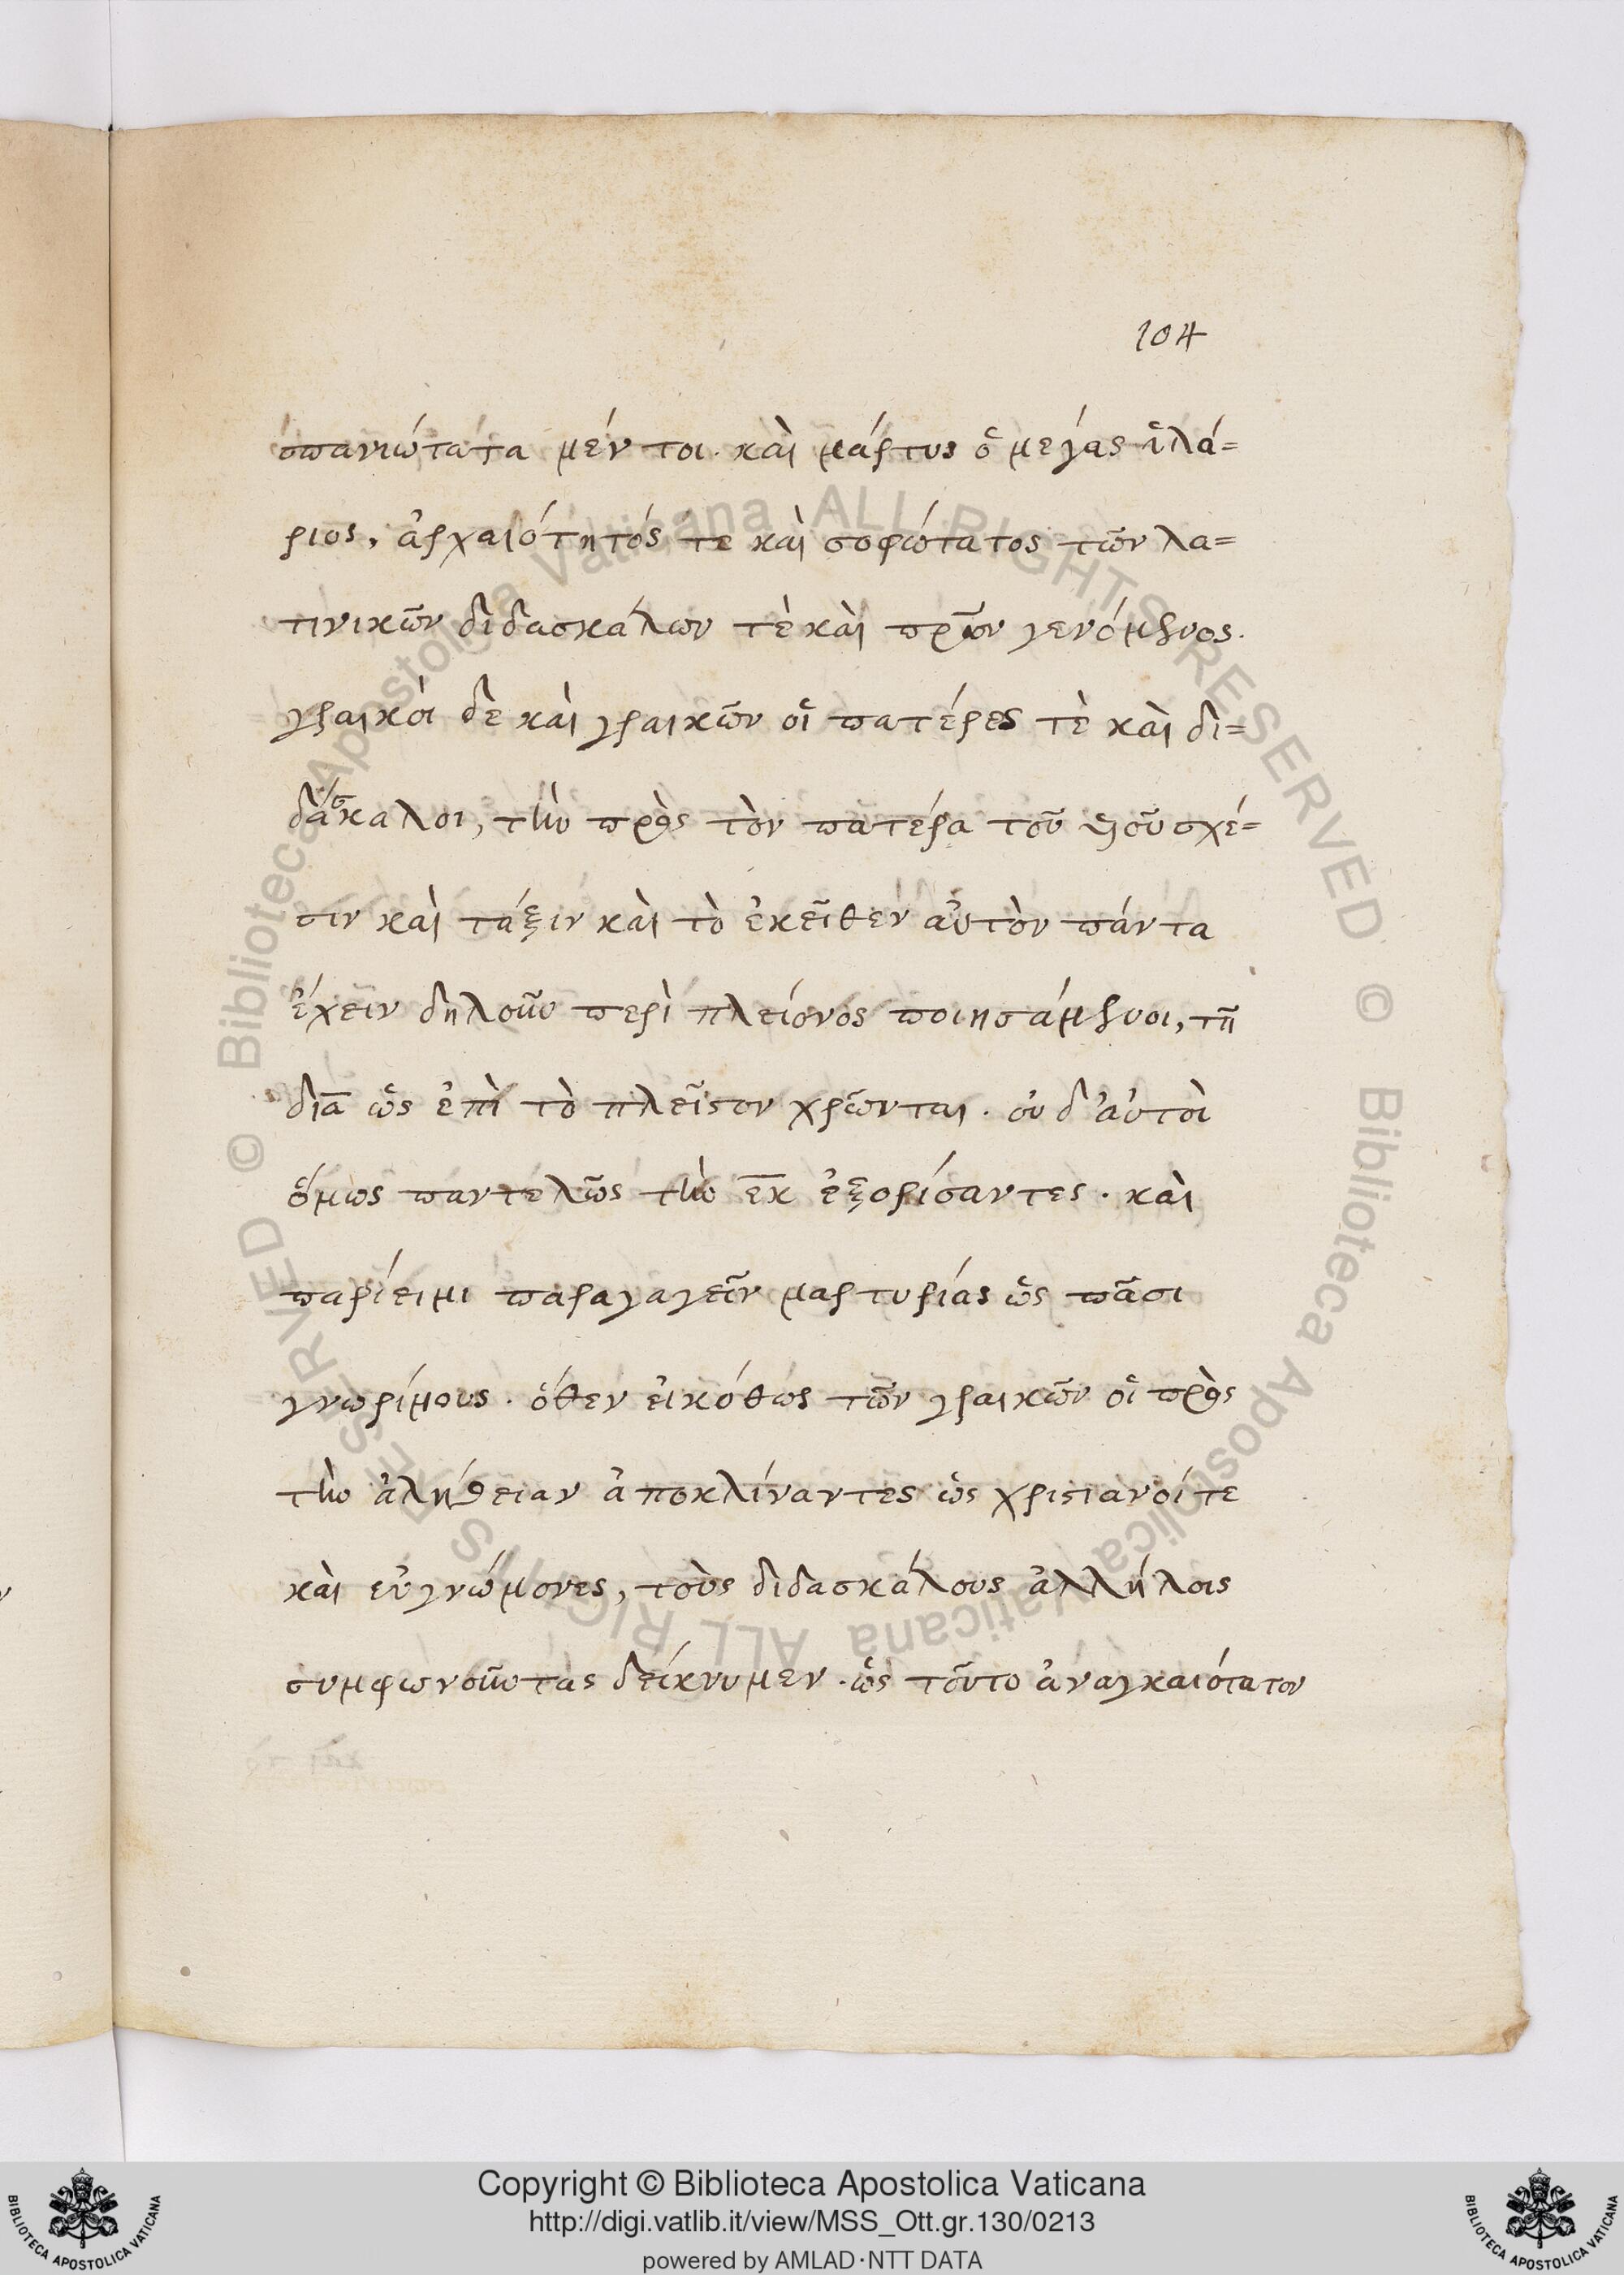 104
σπανιώτατα μέν τοι. καὶ μάρτυς ὁ μέγας ἱλά=
ριος, ἀρχαιότητός τε καὶ σοφώτατος τῶν λα=
τινικῶν διδασκάλων τὲ καὶ πρ̅ων γενόμενος.
γραικοὶ δε καὶ γραικῶν οἱ πατέρες τὲ καὶ δι=
δάσκαλοι, τὴν πρὸς τὸν πατέρα τοῦ υἱοῦ σχέ=
σιν καὶ τάξιν καὶ τὸ ἐκεῖθεν αὐτὸν πάντα
ἔχειν δηλοῦν περὶ πλείονος ποιησάμενοι, τῆ
δια̅ ὡς ἐπὶ τὸ πλεῖστον χρῶνται. οὐ δ' αὐτοὶ
ὅμως παντελῶς τὴν ε̅κ ἐξορίσαντες. καὶ
παρίειμι παραγαγεῖν μαρτυρίας ὡς πᾶσι
γνωρίμους. ὅθεν εἰκότως τῶν γραικῶν οἱ πρὸς
τὴν ἀλήθειαν ἀποκλίναντες ὡς χριστιανοί τε
καὶ εὐγνώμονες, τοὺς διδασκάλους ἀλλήλοις
συμφωνοῦντας δείκνυμεν. ὡς τοῦτο ἀναγκαιότατον
Copyright © Biblioteca Apostolica Vaticana
http://digi.vatlib.it/view/MSS_Ott.gr.130/0213
powered by AMLAD·NTT DATA
BIBLIOTECA APOSTOLICA VATICANA
BIBLIOTECA APOSTOLICA VATICANA
© Biblioteca Apostolica Vaticana ALL RIGHTS RESERVED © Biblioteca Apostolica Vaticana ALL RIGHTS RESERVED